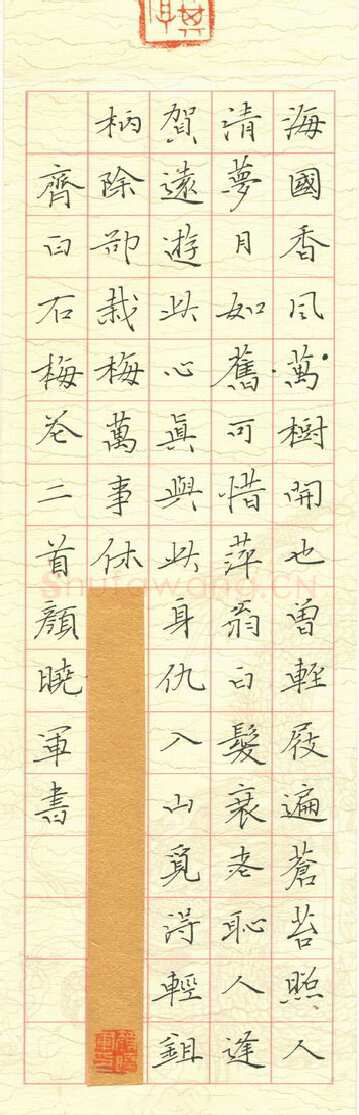 海國香風萬樹開也曾輕屐遍蒼苔照人
清夢月如舊可惜萍翁白髮衰老恥人逢
賀遠遊此心眞與此身仇入山覓得輕鉏
柄除卻栽梅萬事休
齊白石梅花二首顏曉軍書
Shufawang.CN